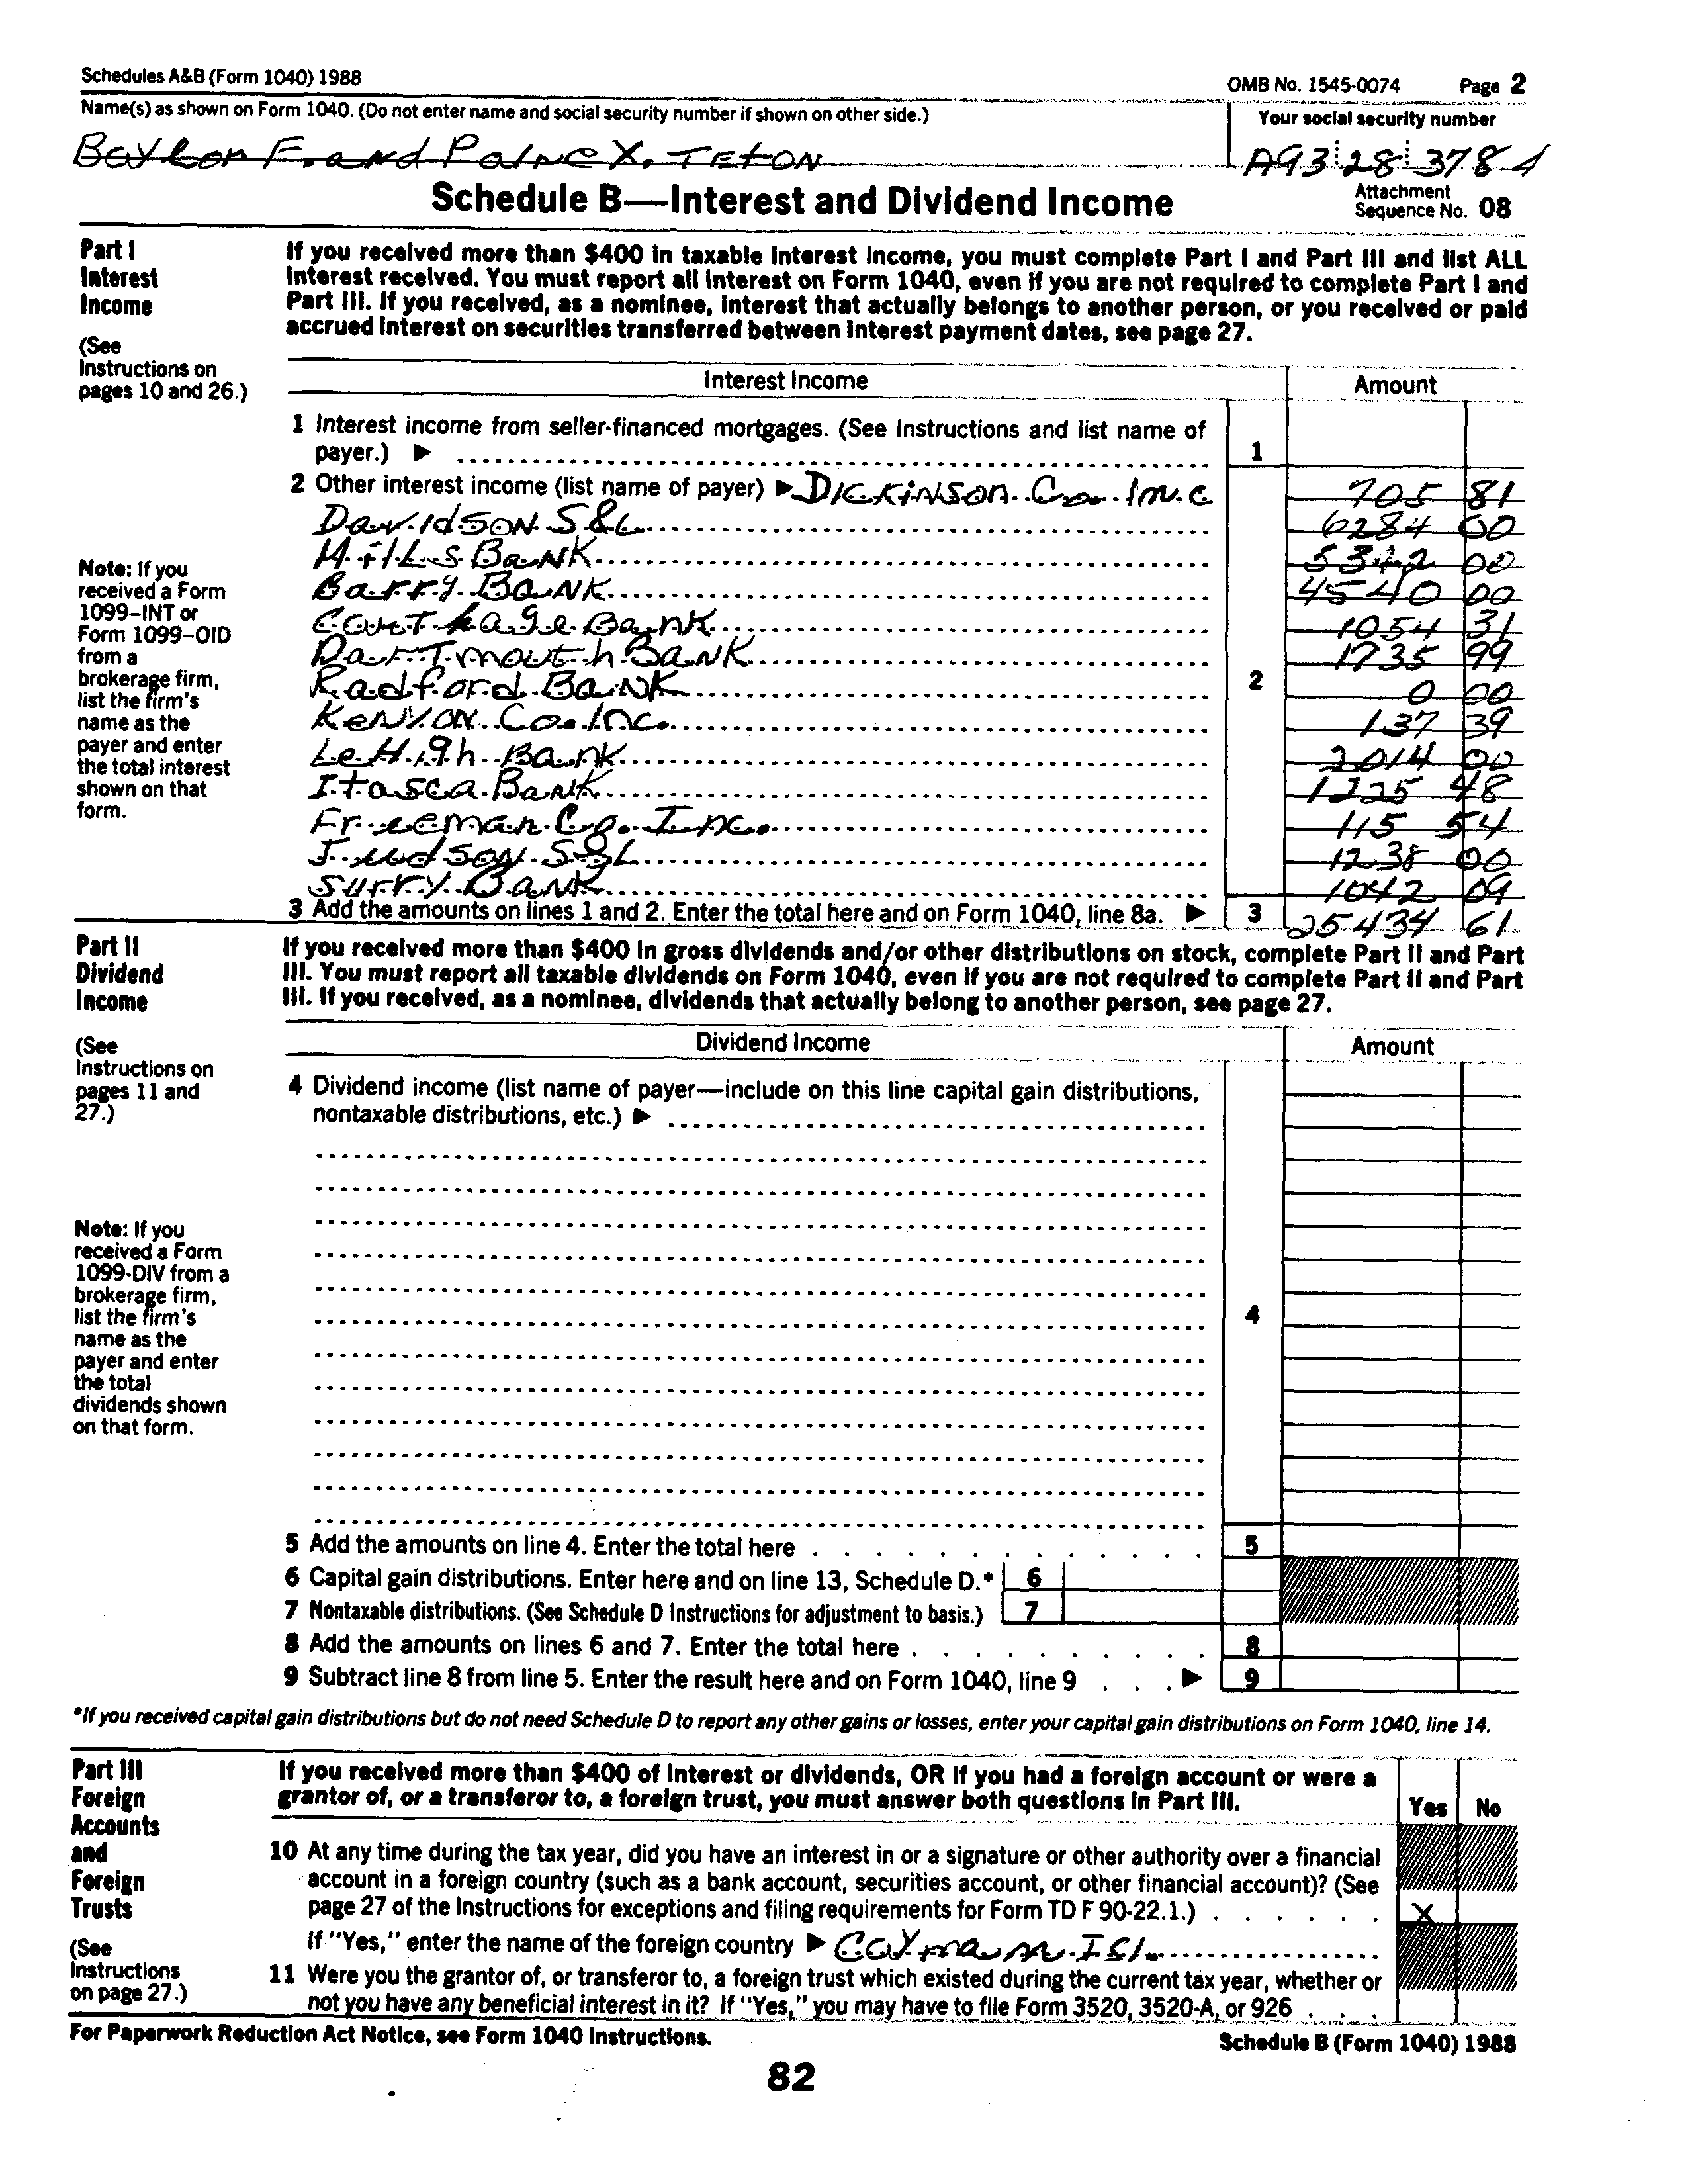 Schedules A&B (Form 1040) 1988 OMB No. 1545-0074 Page 2
Name(s) as shown on Form 1040. (Do not enter name and social security number if shown on other side.) Your social security number
F. and X. TETON A93 28 3784
Schedule B—Interest and Dividend Income Attachment Sequence No. 08
Part I Interest Income
(See Instructions on pages 10 and 26.)
If you received more than $400 in taxable interest income, you must complete Part I and Part III and list ALL
interest received. You must report all interest on Form 1040, even if you are not required to complete Part I and
Part III. If you received, as a nominee, interest that actually belongs to another person, or you received or paid
accrued interest on securities transferred between interest payment dates, see page 27.
Interest Income Amount
1 Interest income from seller-financed mortgages. (See Instructions and list name of
payer.) ▶ 1
2 Other interest income (list name of payer) ▶ Dickinson Co. Inc 705 81
Davidson S&L 6284 00
Mills Bank 5342 00
Barry Bank 4540 00
Carthage Bank 1054 31
Dartmouth Bank 1735 99
Radford Bank 2 0 00
Kenyon Co. Inc. 137 39
Lehigh Bank 2014 00
Itasca Bank 1225 48
Freeman Co. Inc. 115 54
Judson S&L 1238 00
Surry Bank 1042 09
3 Add the amounts on lines 1 and 2. Enter the total here and on Form 1040, line 8a. ▶ 3 25434 61
Note: If you
received a Form
1099–INT or
Form 1099–OID
from a
brokerage firm,
list the firm's
name as the
payer and enter
the total interest
shown on that
form.
Part II Dividend Income
(See Instructions on pages 11 and 27.)
If you received more than $400 in gross dividends and/or other distributions on stock, complete Part II and Part
III. You must report all taxable dividends on Form 1040, even if you are not required to complete Part II and Part
III. If you received, as a nominee, dividends that actually belong to another person, see page 27.
Dividend Income Amount
4 Dividend income (list name of payer—include on this line capital gain distributions,
nontaxable distributions, etc.) ▶
4
Note: If you
received a Form
1099-DIV from a
brokerage firm,
list the firm's
name as the
payer and enter
the total
dividends shown
on that form.
5 Add the amounts on line 4. Enter the total here 5
6 Capital gain distributions. Enter here and on line 13, Schedule D.* 6
7 Nontaxable distributions. (See Schedule D Instructions for adjustment to basis.) 7
8 Add the amounts on lines 6 and 7. Enter the total here 8
9 Subtract line 8 from line 5. Enter the result here and on Form 1040, line 9 ▶ 9
*If you received capital gain distributions but do not need Schedule D to report any other gains or losses, enter your capital gain distributions on Form 1040, line 14.
Part III Foreign Accounts and Foreign Trusts
(See Instructions on page 27.)
If you received more than $400 of interest or dividends, OR if you had a foreign account or were a
grantor of, or a transferor to, a foreign trust, you must answer both questions in Part III. Yes No
10 At any time during the tax year, did you have an interest in or a signature or other authority over a financial
account in a foreign country (such as a bank account, securities account, or other financial account)? (See
page 27 of the Instructions for exceptions and filing requirements for Form TD F 90-22.1.) X
If "Yes," enter the name of the foreign country ▶ Cayman Isl.
11 Were you the grantor of, or transferor to, a foreign trust which existed during the current tax year, whether or
not you have any beneficial interest in it? If "Yes," you may have to file Form 3520, 3520-A, or 926
For Paperwork Reduction Act Notice, see Form 1040 Instructions. Schedule B (Form 1040) 1988
82